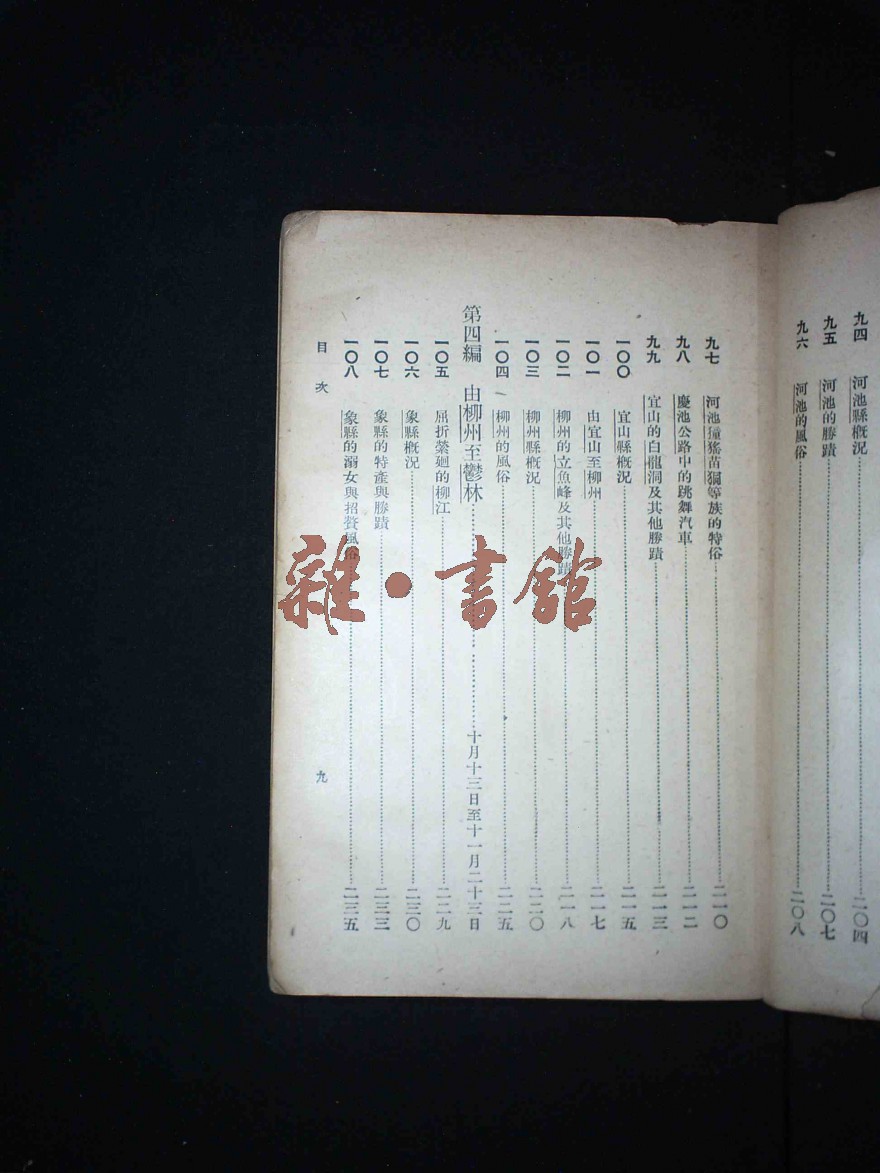 九四 河池縣概况 二〇四
九五 河池的勝蹟 二〇七
九六 河池的風俗 二〇八
九七 河池獞猺苗獨等族的特俗 二一〇
九八 慶池公路中的跳舞汽車 二一二
九九 宜山的白龍洞及其他勝蹟 二一三
一〇〇 宜山縣概況 二一五
一〇一 由宜山至柳州 二一七
一〇二 柳州的立魚峰及其他勝蹟 二一八
一〇三 柳州縣概况 二二〇
一〇四 柳州的風俗 二二五
第四編 由柳州至鬱林 十月十三日至十一月二十三日
一〇五 屈折縈廻的柳江 二二九
一〇六 象縣概况 二三〇
一〇七 象縣的特產與勝蹟 二三三
一〇八 象縣的溺女與招贅風俗 二三五
目次 九
雜·書館